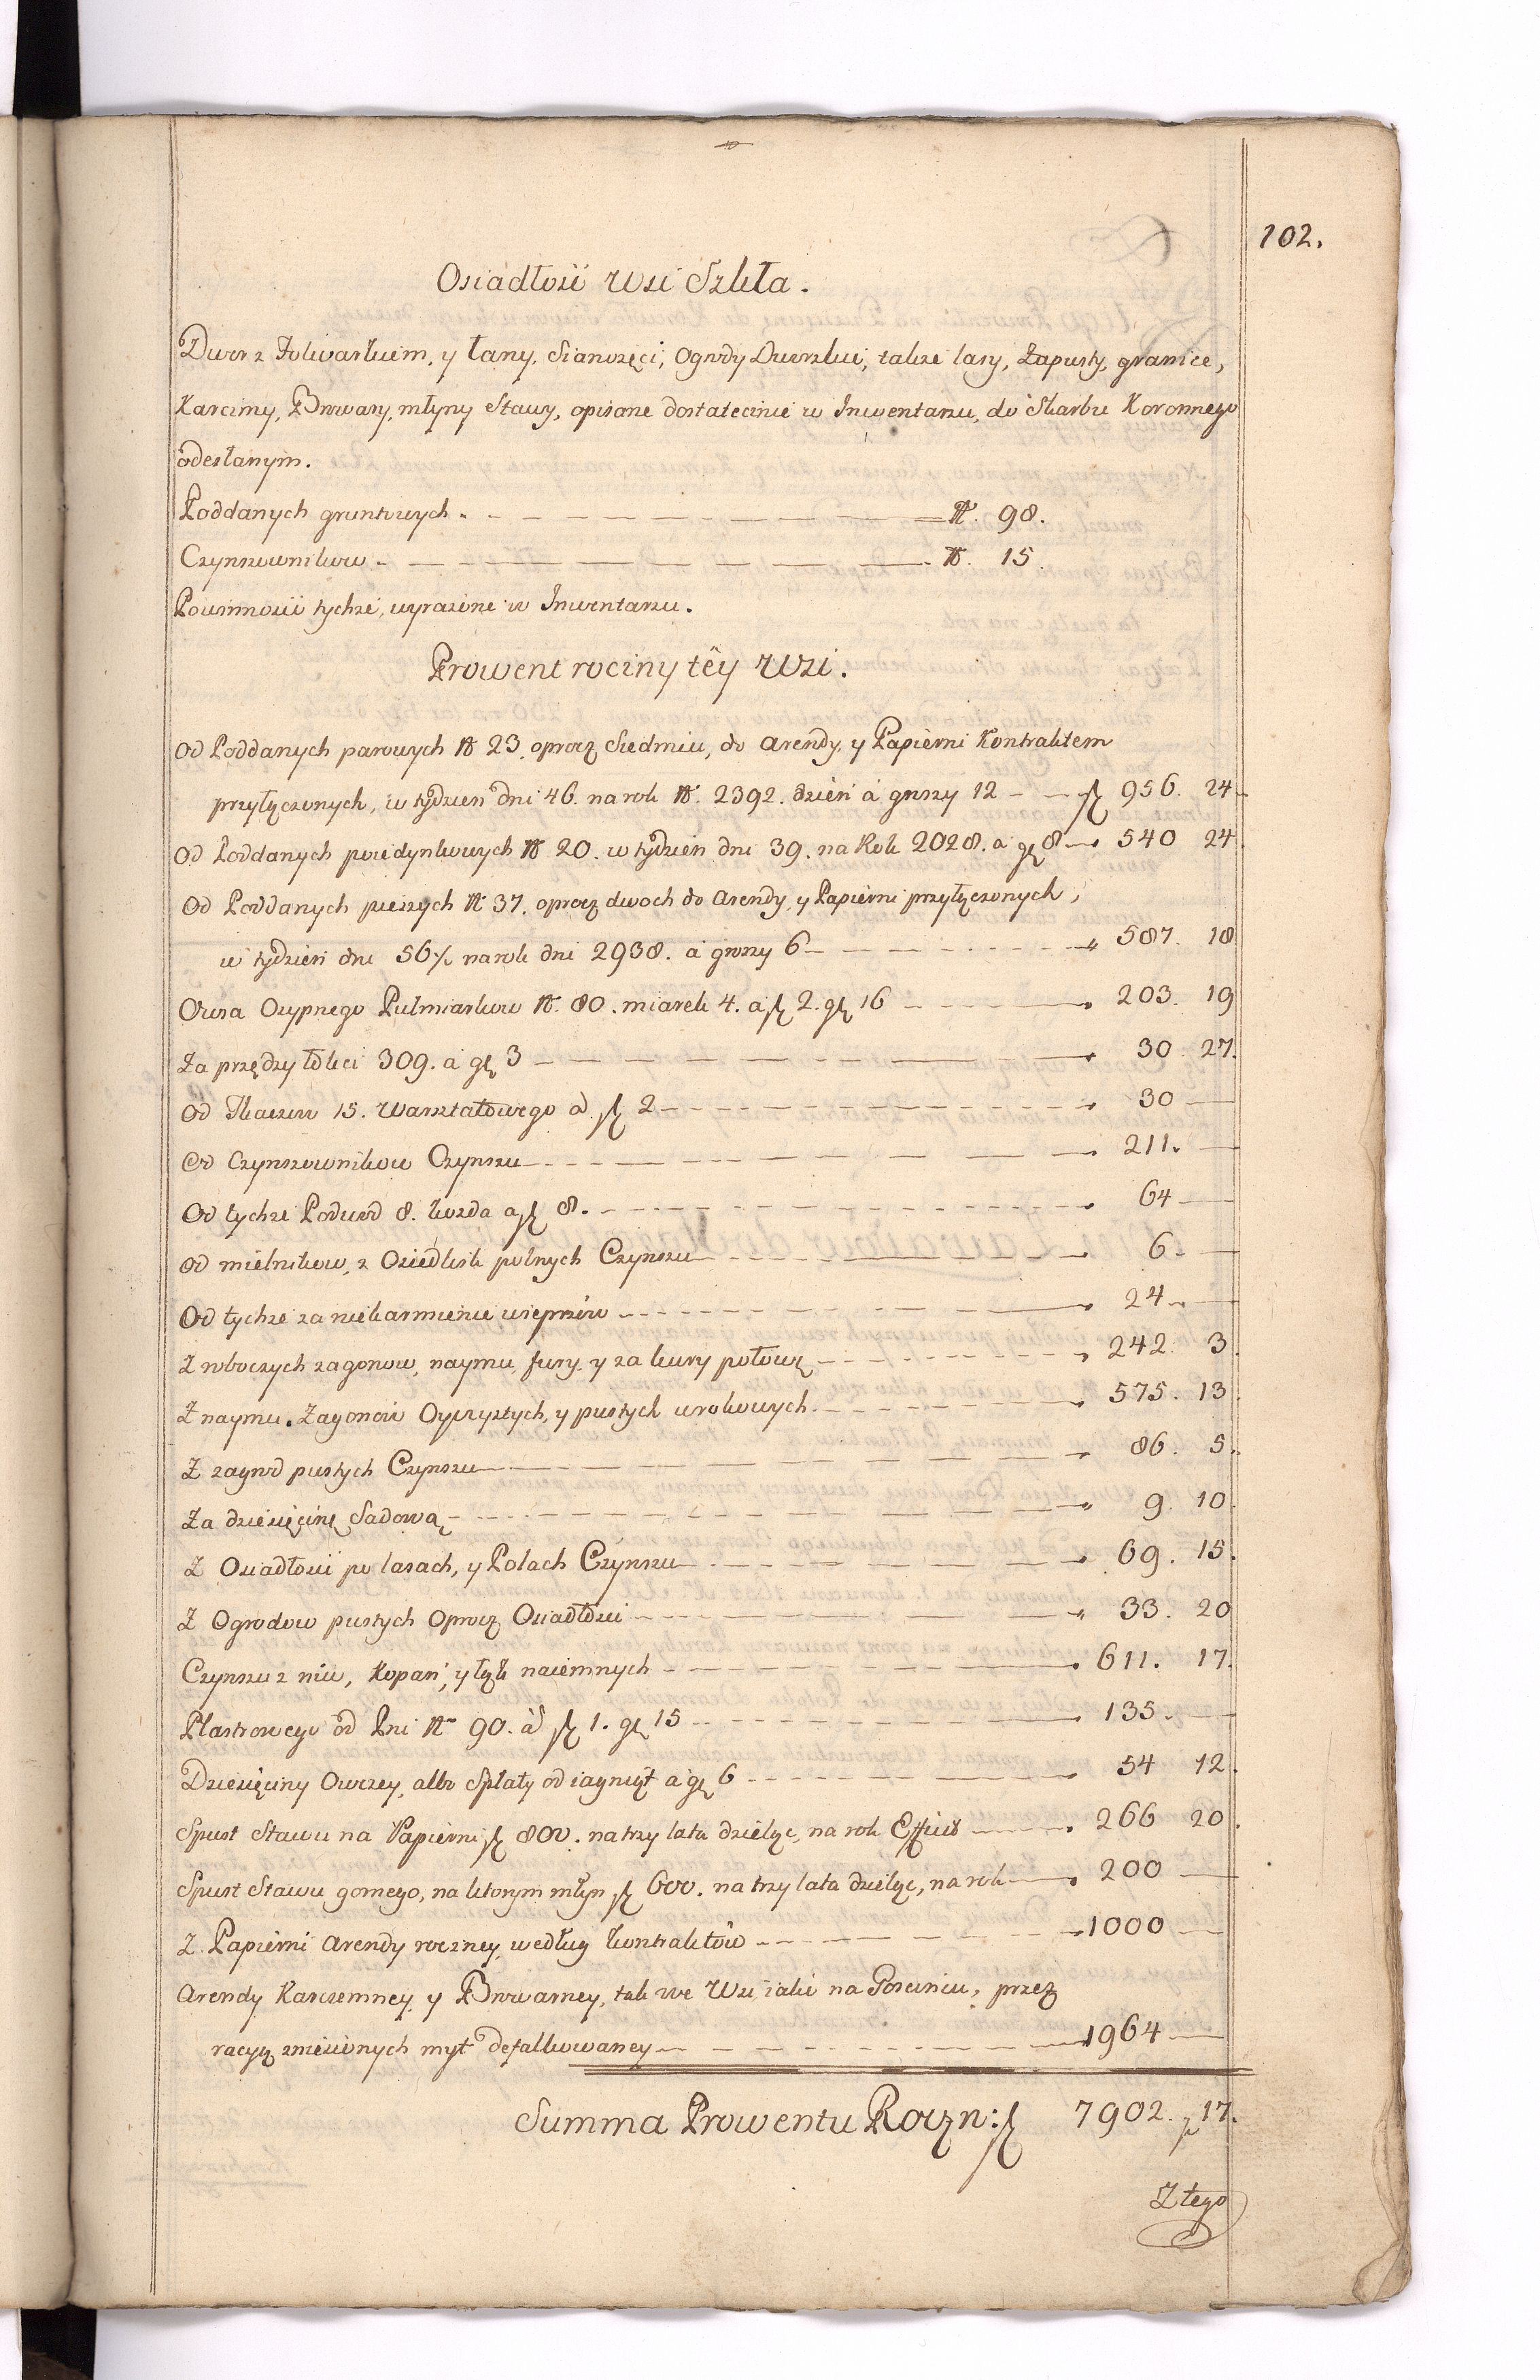 102.
Osiadłość Wsi Szkła.
Dwor z Folwarkiem, y Łany, Sianożęci, Ogrody Dworskie, także lasy, Zapusty, granice,
Karczmy, Browary, młyny Stawy, opisane dostatecznie w Inwentarzu, do Skarbu Koronnego
odesłanym.
Poddanych gruntowych - № 98.
Czynszownikow - № 15.
Powinności tychże, wyrażone w Inwentarzu.
Prowent roczny têy Wsi.
Od Poddanych parowych № 23. oprocz Siedmiu, do Arendy, y Papierni Kontraktem
przyłączonych, w tydzień dni 46. na rok №. 2392. dzień á groszy 12 - zł 956. 24
Od Poddanych poiedynkowych № 20. w tydzień dni 39. na Rok 2028. a gr 8 - 540 24.
Od Poddanych pieszych № 37. oprocz dwoch do Arendy, y Papierni przyłączonych,
w tydzień dni 56½ na rok dni 2938. á groszy 6 - 587. 18
Owsa Osypnego Pułmiarkow №. 80. miarek 4. a zł 2. gr 16 - 203. 19
Za przędzy łokci 309. á gr 3 - 30. 27.
Od Tkaczow 15. Warsztatowego á zł 2 - 30 —
Od Czynszownikow Czynszu - 211. —
Od tychże Podwod 8. każda a zł 8. - 64 —
Od mielnikow, z Osiedlisk polnych Czynszu - 6. —
Od tychże za niekarmienie wieprzów - 24 —
Z roboczych zagonow, naymu, fury, y za kury połowę - 242. 3.
Z naymu Zagonow Oyczystych, y pustych urokowych - 575. 13.
Z zagrod pustych Czynszu - 86. 5.
Za dziesięcinę Sadową - 9. 10.
Z Osiadłości po lasach, y Polach Czynszu - 69. 15.
Z Ogrodow pustych Oprocz Osiadłości - 33. 20
Czynszu z niw, Kopań, y łąk naiemnych - 611. 17.
Plastrowego od Pni № 90. á zł 1. gr 15 - 135. —
Dziesięciny Owczey, albo Spłaty od iagniąt á gr 6 - 54 12.
Spust Stawu na Papierni zł 800. na trzy lata dzieląc, na rok Efficit - 266 20.
Spust Stawu gornego, na ktorym młyn zł 600. na trzy lata dzieląc, na rok - 200 —
Z Papierni Arendy roczney według kontraktów - 1000 —
Arendy Karczemney, y Browarney, tak we Wsi iako na Gościńcu, przez
racyą zniesionych myt defalkowaney - 1964 —
Summa Prowentu Roczn: zł 7902. gr 17.
Z tego